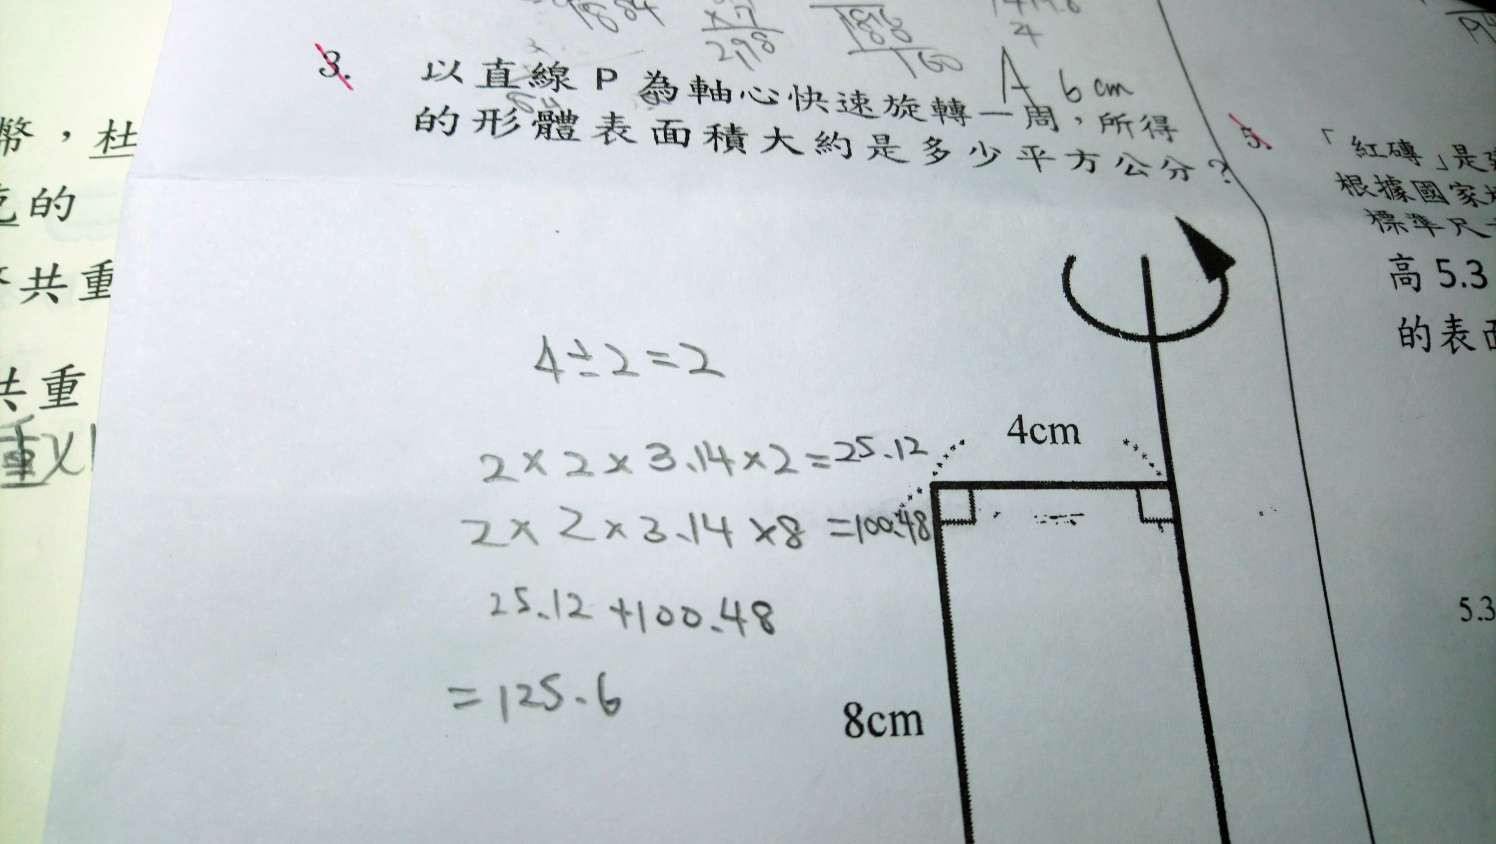 1884
×7
298
1818
160
4
A 6cm
3. 以直線 P 為軸心快速旋轉一周，所得
的形體表面積大約是多少平方公分？
4÷2=2
2×2×3.14×2=25.12
2×2×3.14×8=100.48
25.12+100.48
=125.6
4cm
8cm
幣，杜
的
共重
共重
重
5. 「紅磚」是
根據國家
標準尺
高 5.3
的表
5.3